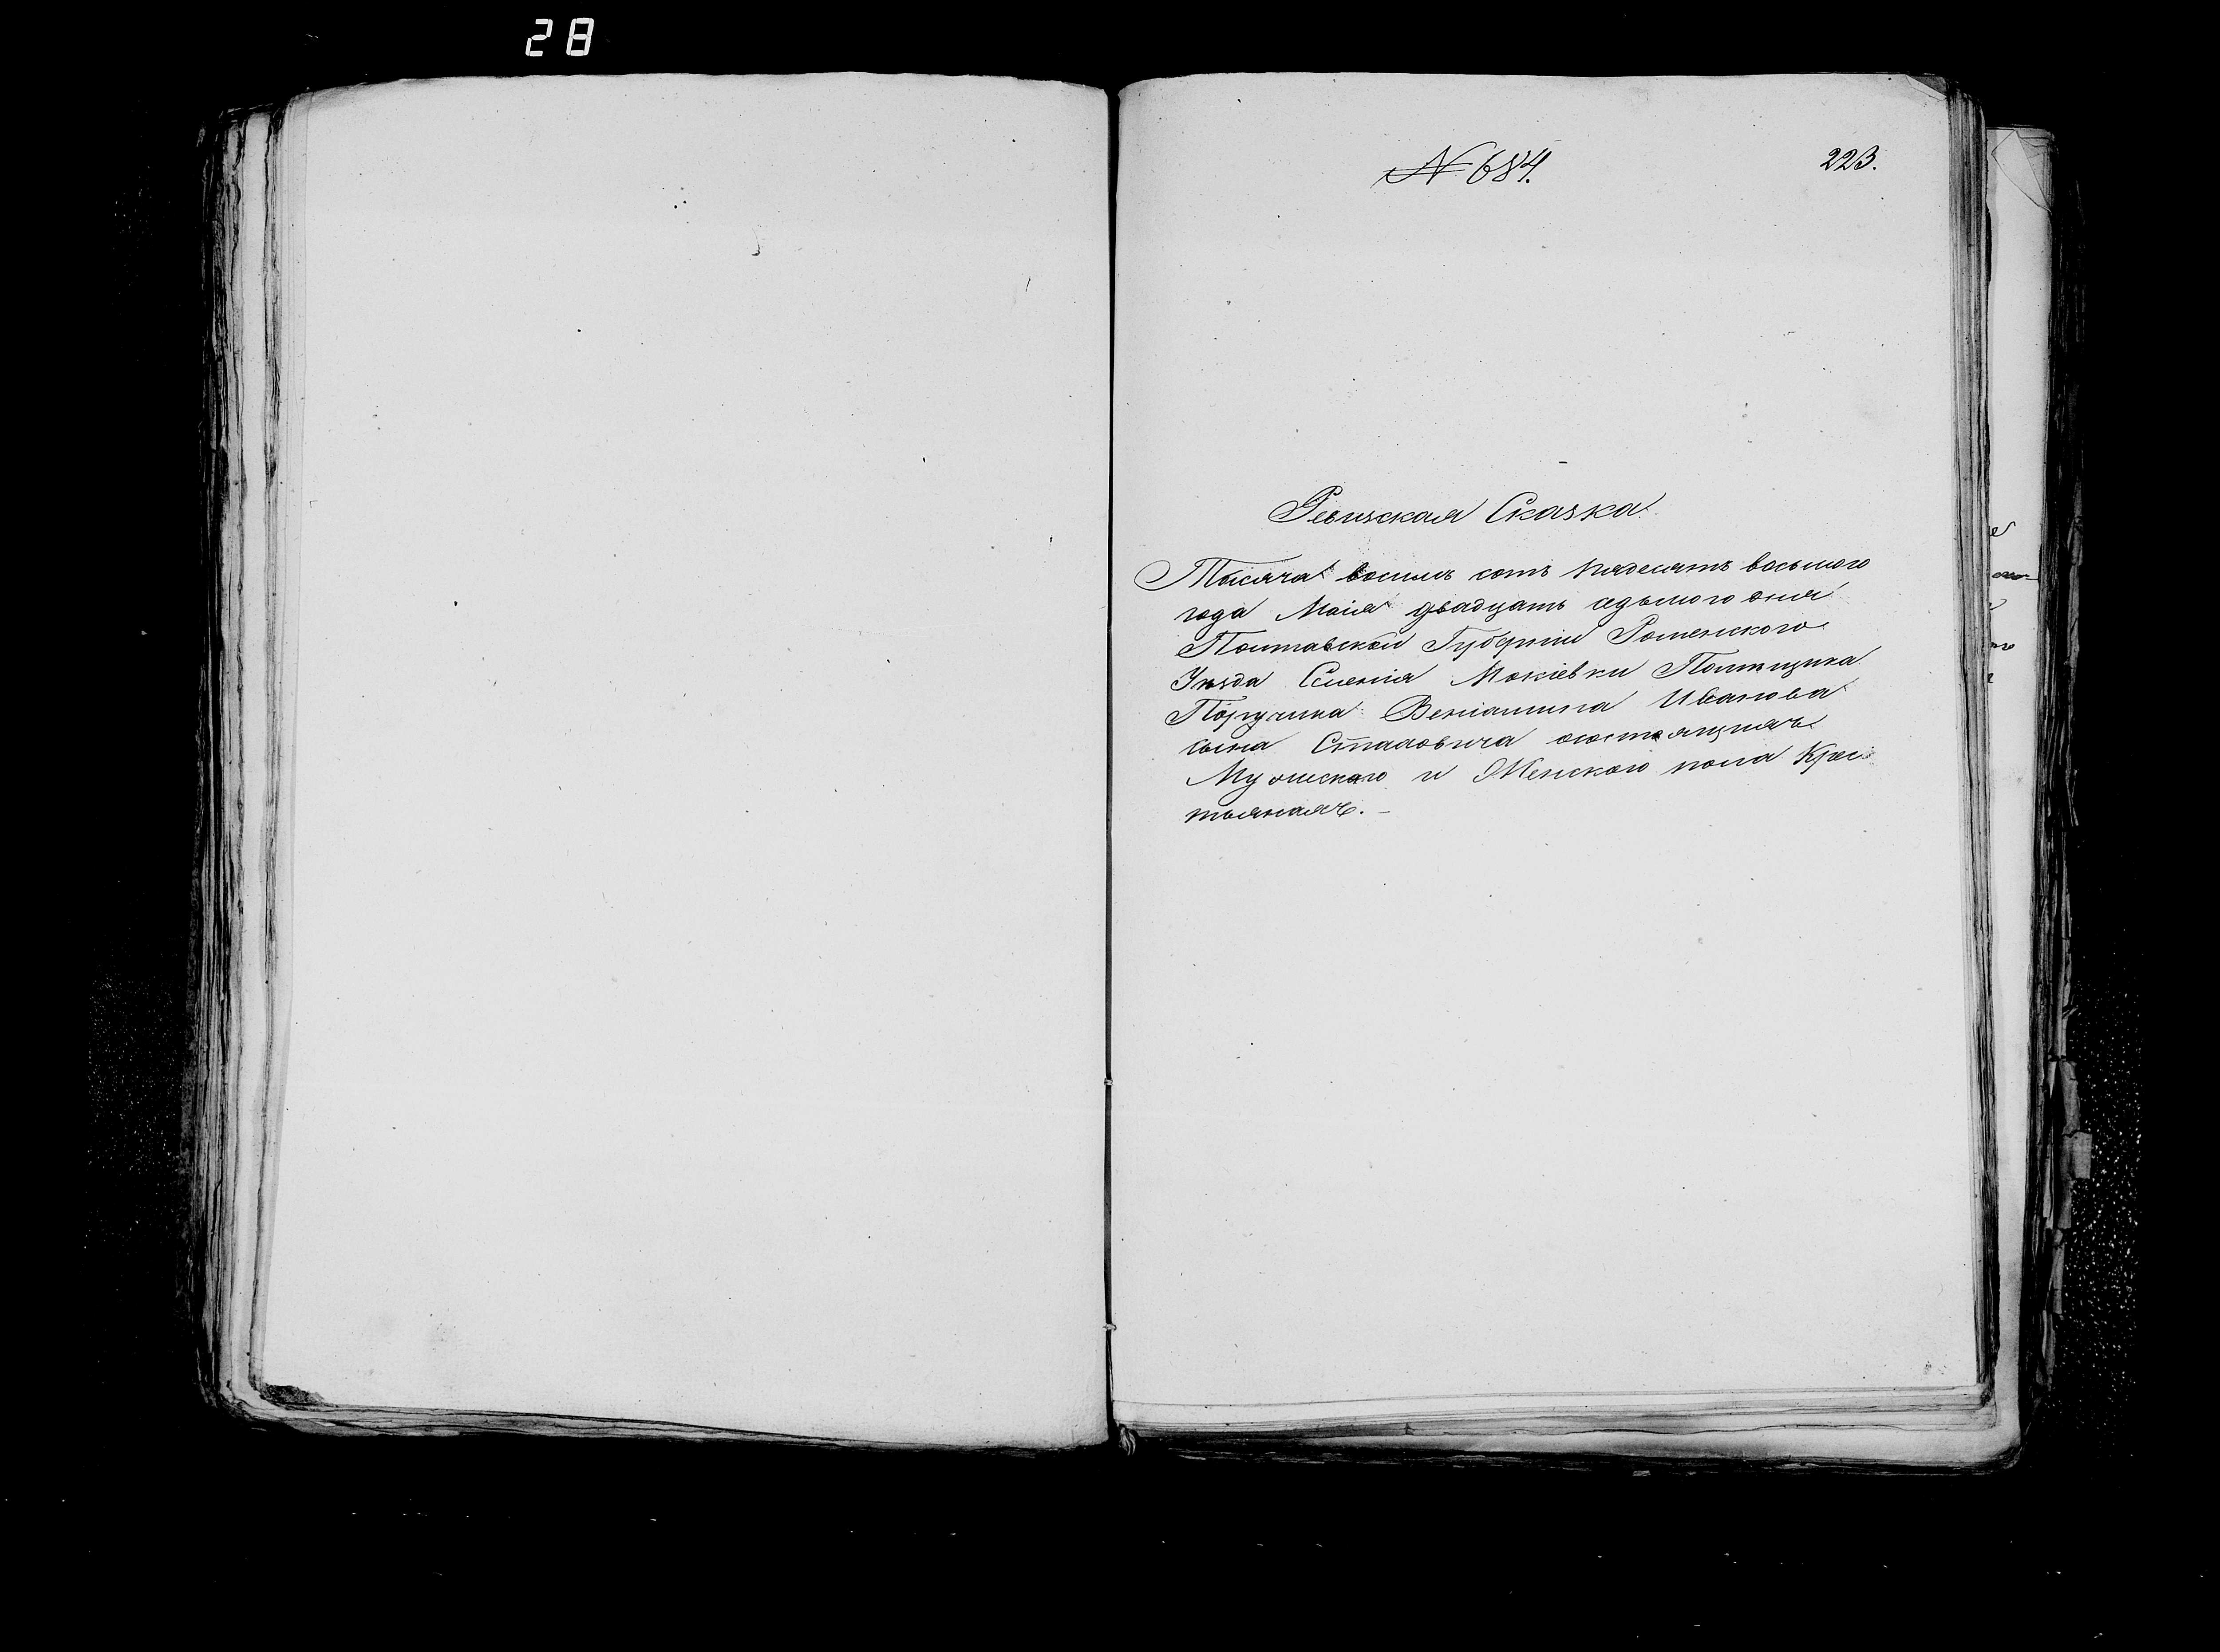 28
№ 684.
223.
Ревизская Сказка
Тысяча восимъ сотъ пядесятъ восьмого
года Маія двадцать седьмого дня
Полтавской Губерніи Роменского
Уезда Селенія Мокіевки Помещика
Поручика Веніамина Иванова
сына состоящимъ
Мужеского и Женского пола Крес
тьянамъ. –